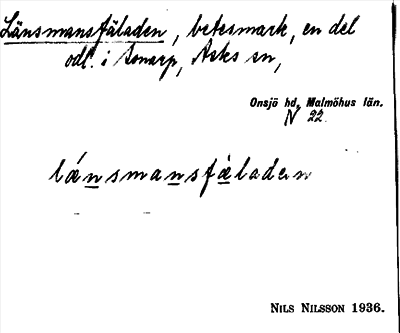 Länsmansfäladen, betesmark, en del
odl. i Tonarp, Asks sn,
Onsjö hd, Malmöhus län.
N 22.
länsmansfäladen
NILS NILSSON 1936.